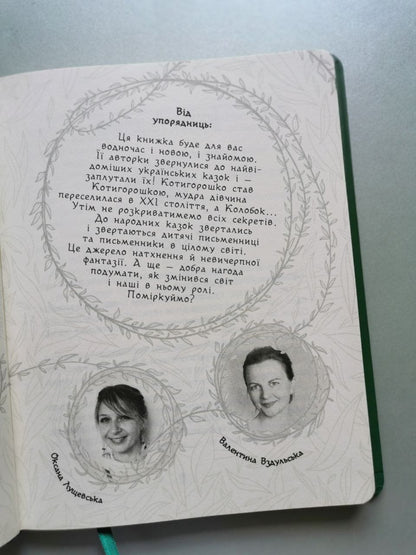 Від
упорядниць:
Ця книжка буде для вас
водночас і новою, і знайомою.
Її авторки звернулися до найві-
доміших українських казок і –
заплутали їх! Котигорошко став
Котигорошкою, мудра дівчина
переселилася в XXI століття, а Колобок...
Утім не розкриватимемо всіх секретів.
До народних казок звертались
і звертаються дитячі письменниці
та письменники в цілому світі.
Це джерело натхнення й невичерпної
фантазії. А ще – добра нагода
подумати, як змінився світ
і наші в ньому ролі.
Поміркуймо?
Оксана Лущевська
Валентина Вздульська